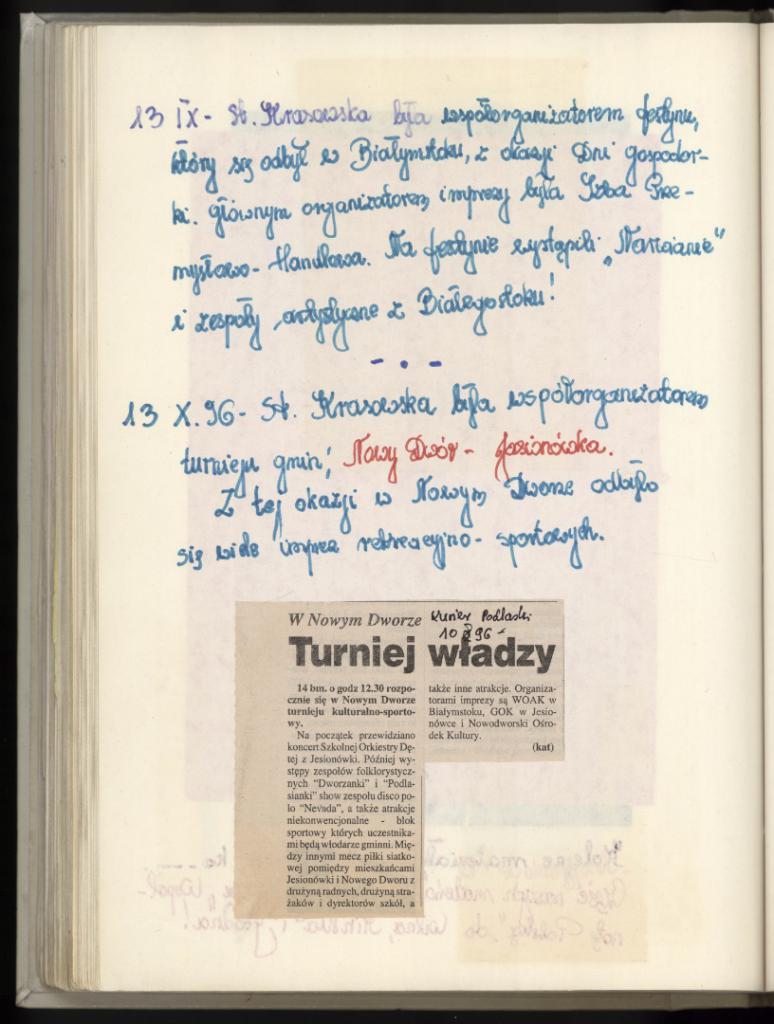 13 IX - St. Krasowska była współorganizatorem festynu,
który się odbył w Białymstoku, z okazji Dni Gospodar-
ki. Głównym organizatorem imprezy była Izba Prze-
mysłowo-Handlowa. Na festynie wystąpili "Narwianie"
i zespoły artystyczne z Białegostoku!
- . -
13 X.96- St. Krasowska była współorganizatorem
turnieju gmin; Nowy Dwór - Jasionówka.
Z tej okazji w Nowym Dworze odbyło
się wiele imprez rekreacyjno-sportowych.
W Nowym Dworze
Kurier Podlaski
10 X 96-
Turniej władzy
14 bm. o godz 12.30 rozpo-
cznie się w Nowym Dworze
turnieju kulturalno-sporto-
wy.
Na początek przewidziano
koncert Szkolnej Orkiestry Dę-
tej z Jesionówki. Później wy-
stępy zespołów folklorystycz-
nych "Dworzanki" i "Podla-
sianki" show zespołu disco po-
lo "Nevada", a także atrakcje
niekonwencjonalne - blok
sportowy których uczestnika-
mi będą włodarze gminni. Mię-
dzy innymi mecz piłki siatko-
wej pomiędzy mieszkańcami
Jesionówki i Nowego Dworu z
drużyną radnych, drużyną stra-
żaków i dyrektorów szkół, a
także inne atrakcje. Organiza-
torami imprezy są WOAK w
Białymstoku, GOK w Jesio-
nówce i Nowodworski Ośro-
dek Kultury.
(kat)